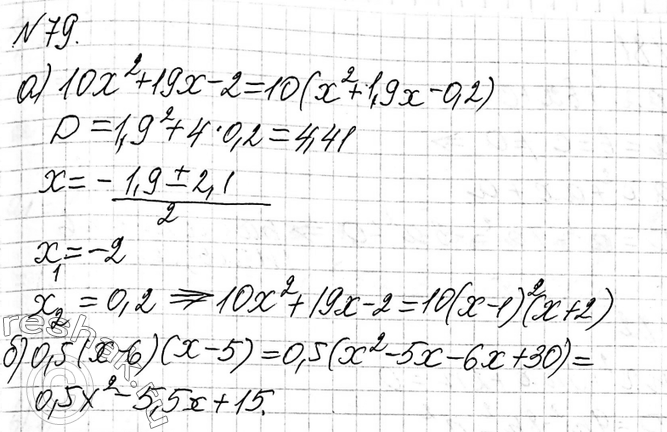 №79.
а) 10x²+19x-2=10(x²+1,9x-0,2)
D=1,9²+4·0,2=4,41
x=-1,9±2,1/2
x₁=-2
x₂=0,2 ⇒ 10x²+19x-2=10(x-1)²(x+2)
б) 0,5(x-6)(x-5)=0,5(x²-5x-6x+30)=
0,5x²-5,5x+15.